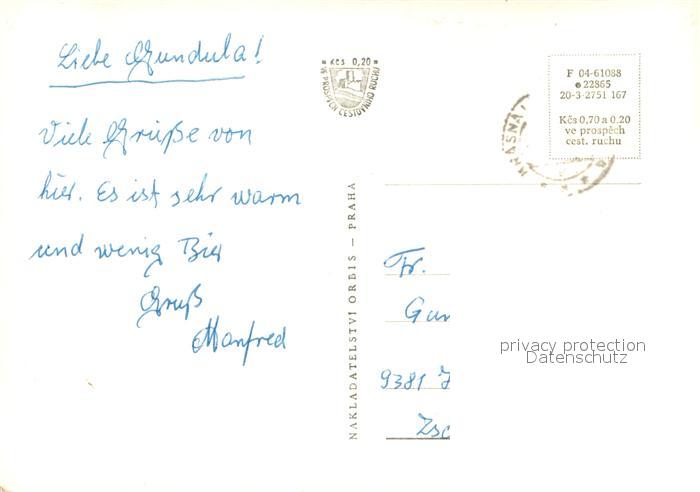 Liebe Gundula!
Viele Grüße von
hier. Es ist sehr warm
und wenig Bier
Gruß
Manfred
Kčs 0,20
VE PROSPĚCH CESTOVNÍHO RUCHU
F 04-61088
22865
20-3-2751 167
Kčs 0,70 a 0.20
ve prospěch
cest. ruchu
KRÁSNÁ
NAKLADATELSTVÍ ORBIS — PRAHA
Fr.
Gun
9381 J
Zsc
privacy protection
Datenschutz